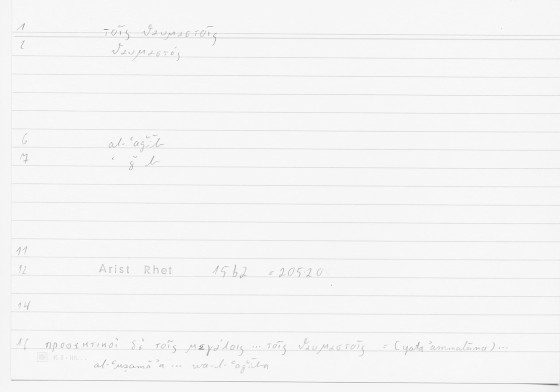 1 τοῖς θαυμαστοῖς
2 θαυμαστός
6 al-ʿaǧīb
7 ʿ ǧ b
11
12 Arist Rhet 1562 = 20520
14
15 προσεκτικοὶ δὲ τοῖς μεγάλοις ... τοῖς θαυμαστοῖς = ...
... wa-l-ʿaǧība